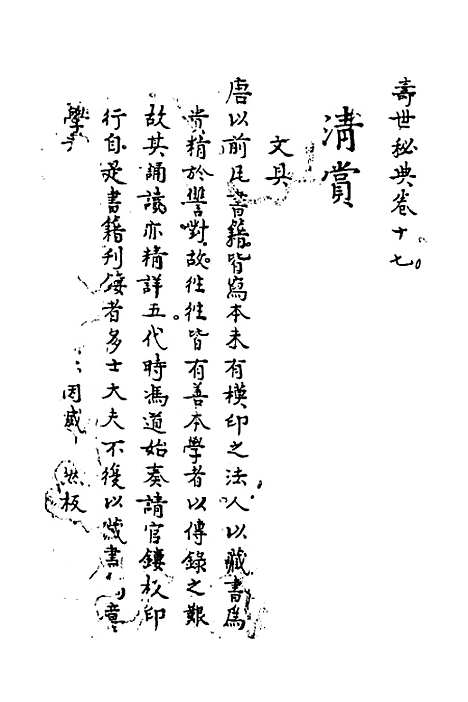 寿世秘典卷十七
清賞
文具
唐以前凡書籍皆寫本未有模印之法人以藏書為
貴精於讐對故往往皆有善本學者以傳錄之艱
故其誦讀亦精詳五代時馮道始奏請官鏤板印
行自是書籍刊鏤者多士大夫不復以藏書意
學 因 板